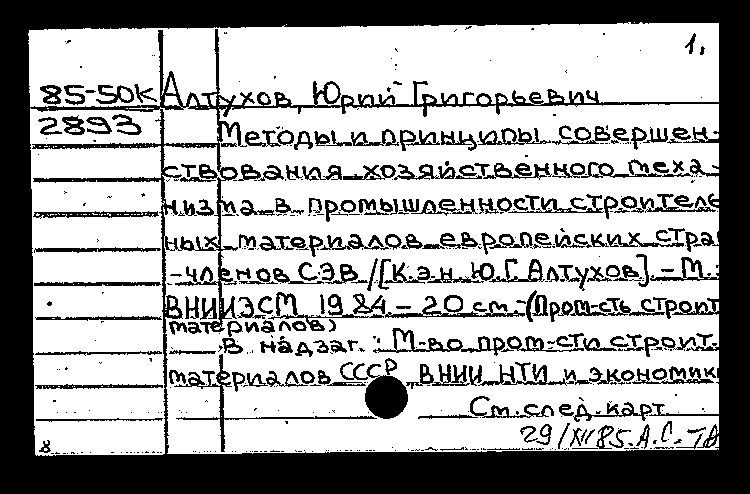 1.
85-50К Алтухов, Юрий Григорьевич
2893 Методы и принципы совершен-
ствования хозяйственного меха-
низма в промышленности строитель
ных материалов европейских стра
-членов СЭВ /[К.э.н. Ю.Г. Алтухов]. - М.:
ВНИИЭСМ, 1984 - 20 см. - (Пром-сть строит.
материалов)
В надзаг.: М-во пром-сти строит.
материалов СССР, ВНИИ НТИ и экономики
См. след. карт.
29/XII 85. А.С.
8